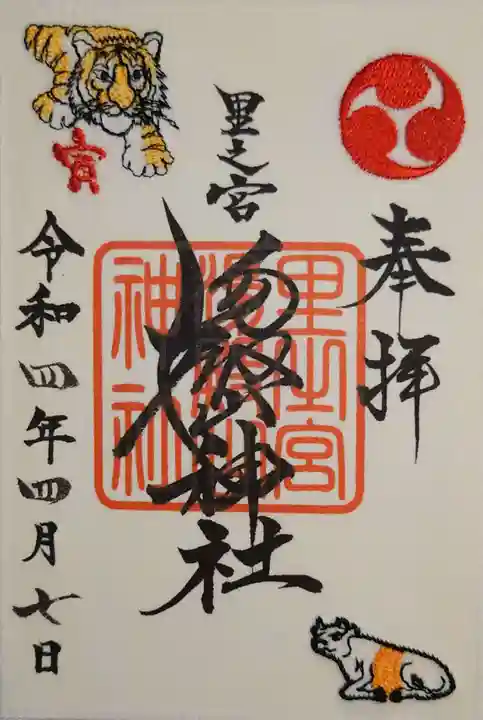 奉拝
里之宮
湯殿山神社
里之宮
湯殿山
神社
寅
令和四年四月七日